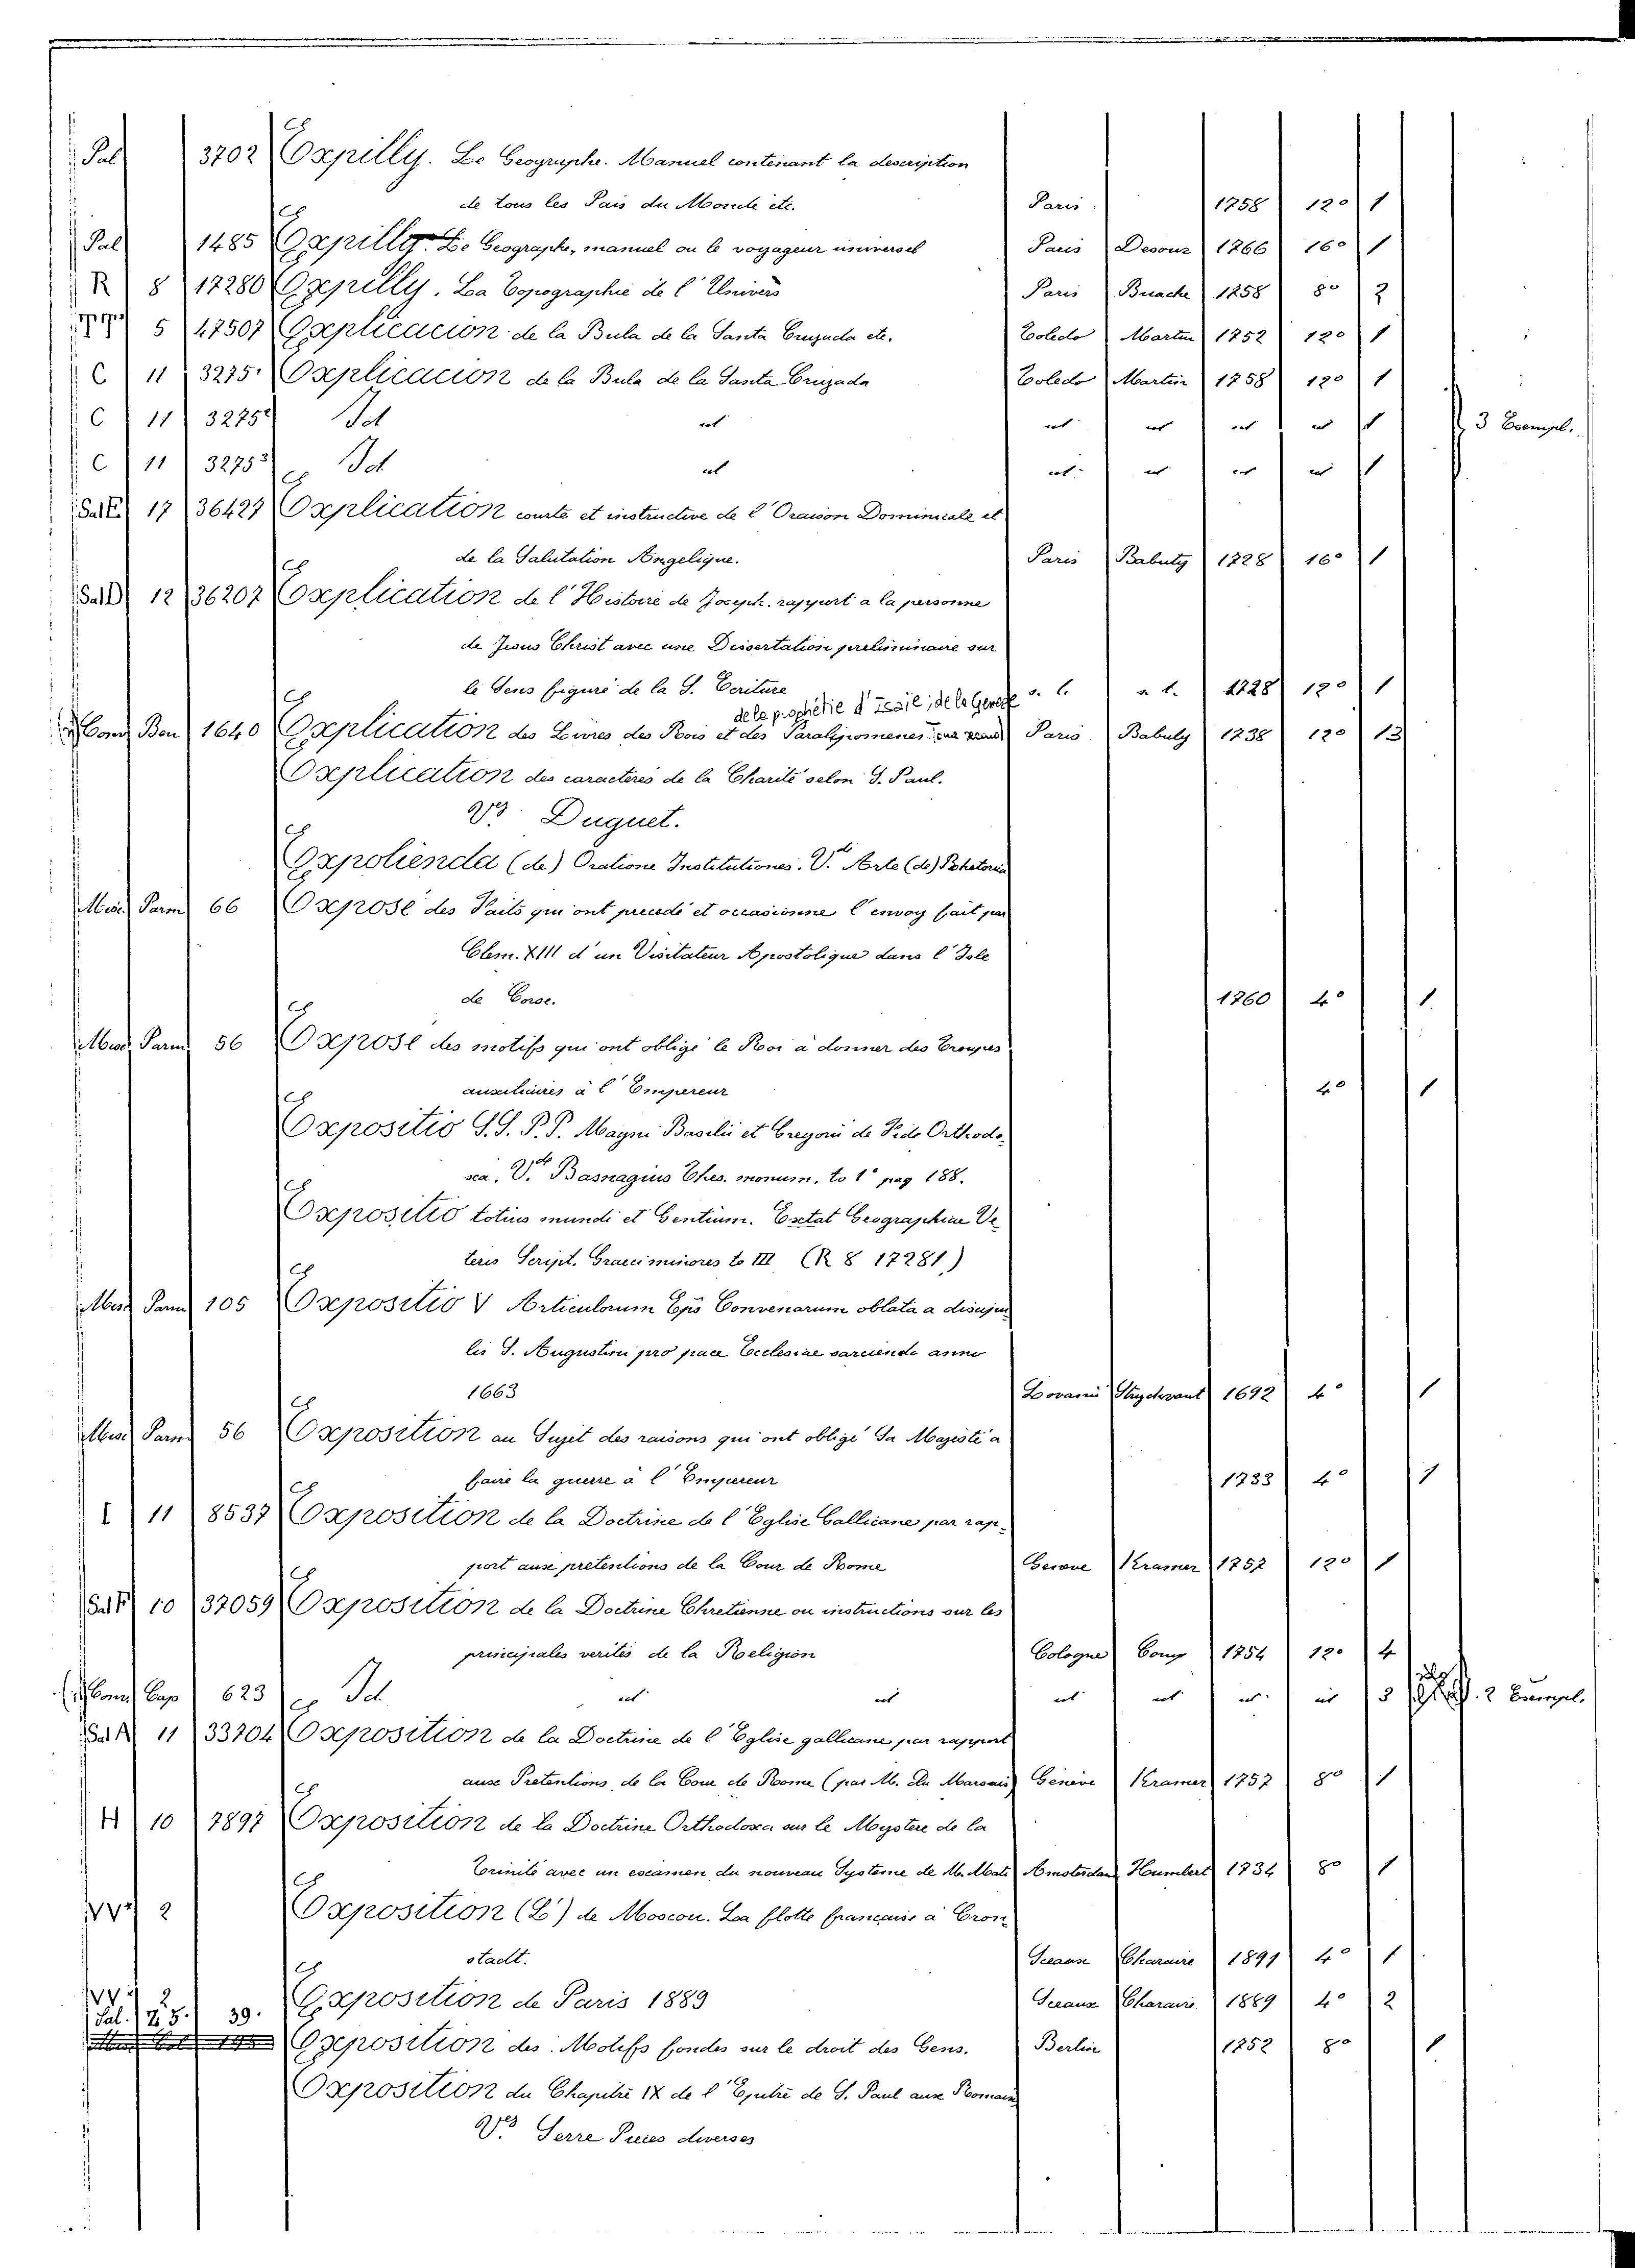 Pal 3702 Expilly. Le Geographe. Manuel contenant la description
de tous les Pais du Monde etc. Paris. 1758 12º 1
Pal 1485 Expilly. Le Geographe, manuel ou le voyageur universel Paris Desour 1766 16º 1
R 8 17280 Expilly. La Topographie de l'Univers Paris Buache 1758 8º 2
5 47507 Explicacion de la Bula de la Santa Cruzada etc. Toledo Martin 1752 12º 1
C 11 3275¹ Explicacion de la Bula de la Santa Cruzada Toledo Martin 1758 12º 1
C 11 3275² Id ut ut ut ut ut 1 3 Exempl.
C 11 3275³ Id ut ut ut ut ut 1
Sal E 17 36427 Explication courte et instructive de l'Oraison Dominicale et
de la Salutation Angelique. Paris Babuty 1728 16º 1
Sal D 12 36207 Explication de l'Histoire de Joseph. rapport a la personne
de Jesus Christ avec une Dissertation preliminaire sur
le Sens figuré de la S. Ecriture s. l. a. t. 1728 12º 1
de la prophétie d'Isaie; de la Genese
Bon 1640 Explication des Livres des Rois et des Paralipomenes Paris Babuty 1738 12º 13
Explication des caracteres de la Charité selon S. Paul.
Vᵉˢ Duguet.
Expolienda (de) Oratione Institutiones. Vᵈᵉ Arte (de) Rhetorica
Misc Parm 66 Exposé des Faits qui ont precedé et occasionne l'envoy fait par
Clem. XIII d'un Visitateur Apostolique dans l'Isle
de Corse. 1760 4º 1.
Misc Parm 56 Exposé des motifs qui ont obligé le Roi à donner des Troupes
auxiliaires à l'Empereur 4º 1
Expositio S.S. P.P. Magni Basilii et Gregorii de Fide Orthodo-
xa. Vᵈᵉ Basnagius Thes. monum. to 1º pag 188.
Expositio totius mundi et Gentium. Extat Geographiae Ve-
teris Script. Graeci minores to III (R 8 17281)
Misc Parm 105 Expositio V Articulorum Epis Convenarum oblata a discipu-
lis S. Augustini pro pace Ecclesiae sarcienda anno
1663 Lovanii Strychwant 1692 4º 1
Misc Parm 56 Exposition au Sujet des raisons qui ont obligé Sa Majesté a
faire la guerre à l'Empereur 1733 4º 1
I 11 8537 Exposition de la Doctrine de l'Eglise Gallicane par rap-
port aux pretentions de la Cour de Rome Geneve Kramer 1757 12º 1
Sal F 10 37059 Exposition de la Doctrine Chretienne ou instructions sur les
principales verités de la Religion Cologne Comp 1754 12º 4
Cap 623 Id ut ut ut ut ut ut 3 2 Exempl.
Sal A 11 33704 Exposition de la Doctrine de l'Eglise gallicane par rapport
aux Pretentions de la Cour de Rome (par M. Du Marsais) Génève Kramer 1757 8º 1
H 10 7897 Exposition de la Doctrine Orthodoxa sur le Mystere de la
Trinité avec un examen du nouveau Systeme de M. Maty Amsterdam Humbert 1734 8º 1
VV 2 Exposition (L') de Moscou. La flotte francaise à Cron-
stadt. Sceaux Charaire 1891 4º 1
VV. 2 Exposition de Paris 1889 Sceaux Charaire. 1889 4º 2
Sal. Z 5. 39. Exposition des Motifs fondés sur le droit des Gens. Berlin 1752 8º 1
Exposition du Chapitre IX de l'Epitre de S. Paul aux Romains
Vᵉˢ Serre Pieces diverses